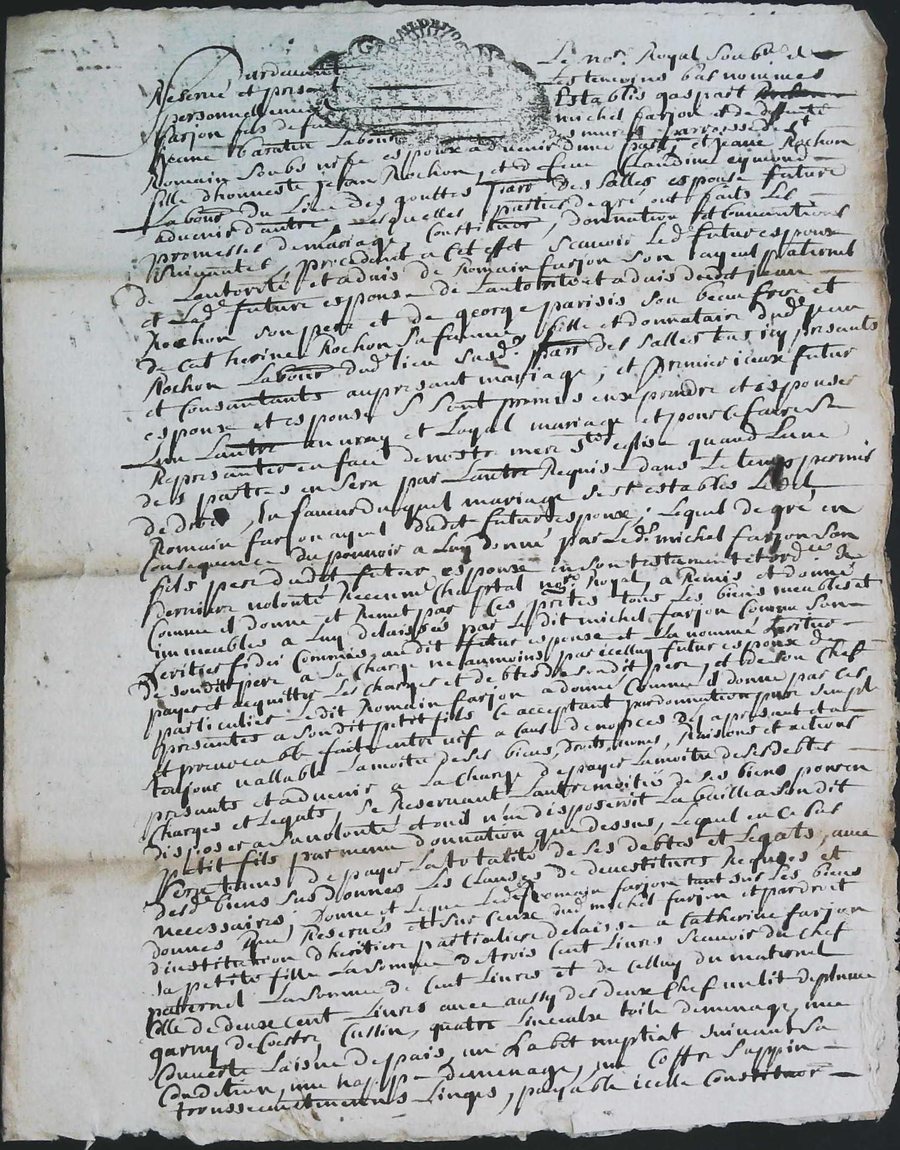 Pardevant Le no.re Royal soub.né et
Reservé et present Les temoins bas nommes
personnellement Establis gaspart
farjon fils de feu michel farjon et de deffunte
Jeanne labour
Romain espoux advenir d'une part, et Jeane Rochon
fille d'honneste jean Rochon, et de feue Claudine eymond
Labour du Lieu des gouttes parr. des salles espouse future
advenir d'autre, Lesquelles parties de gré ont faits Les
promesses de mariage, Constitution, donnation et Conventions
suivantes, procedant a Cet effet scavoir Led. futur espoux
de L'autorité et advis de Romain farjon son ayeul paternel
et Lad. future espouse de L'autorité et advis dudit jean
Rochon son pere et de george parisis son beau frere et
de Catherine Rochon sa femme fille et donnataire dud. jean
Rochon Labour dud. lieu susd. parr. des salles tous icy presants
et Consantants au present mariage, et premier iceux futur
espoux et espouse se sont promis eux prandre et espouser
L'un L'autre en vray et Loyal mariage et pour Ce faire se
Representer en face de nostre mere s.te eglise quand L'une
des parties en sera par L'autre Requise dans Le temps permis
de droit, En faveur duquel mariage s'est establis Led.
Romain farjon ayeul dudit futur espoux; Lequel de gré en
Consequence du pouvoir a Luy donné par Led. michel farjon son
fils pere dudit futur espoux en son testament et ord.ce de
derniere volonté Receu Chaptal no.re Royal, a Remis et donné
Comme il donne et Remet par Ces p.ntes tous Les biens meubles et
immeubles a Luy delaissés par Ledit michel farjon Comme son
heritier fidei Commis, audit futur espoux et La nommé heritier
de sondit pere a La Charge neanmoins par icelluy futur espoux de
payer et acquitter Les Charges et debtes de sondit pere, et de son Chef
particulier Ledit Romain farjon a donné Comme il donne par Ces
presantes a sondit petit fils Ce acceptant par donnation pure simple
et irrevocable faite entre vif a Cause de nopces des a present et a
toujour vallable La moitié de ses biens, droits, noms, Raisons et actions
presants et advenir a La Charge de payer La moitié de ses debtes
Charges et Legats, se Reservant L'autre moitié de ses biens pour en
disposer a sa volonté et ou il n'en disposeroit La baille a sondit
petit fils par meme donnation que dessus, Lequel en Ce Cas
sera tenus de payer La totalité de ses debtes et Legats, avec
des d. biens sus donnés Les Clauses de devestitures Requises et
necessaires; Donne et Legue Led. Romain farjon tant sur Les biens
donnés que Reservés et sur Ceux dud. michel farjon et par droit
d'institution d'heritiere particuliere delaisse a Catherine farjon
sa petite fille La somme de trois Cent Livres scavoir du Chef
paternel La somme de Cent Livres et de Celluy du maternel
Celle de deux Cent Livres avec aussy des deux Chef un lit de plume
garny de Coestre Cussin, quatre Linceulx toile de menage, une
Couverte Laisne de pais, un habit nuptial suivant sa
Condition, une nappe de menage, un Coffre sappin
troussement menus Linges, payable icelle Constitution